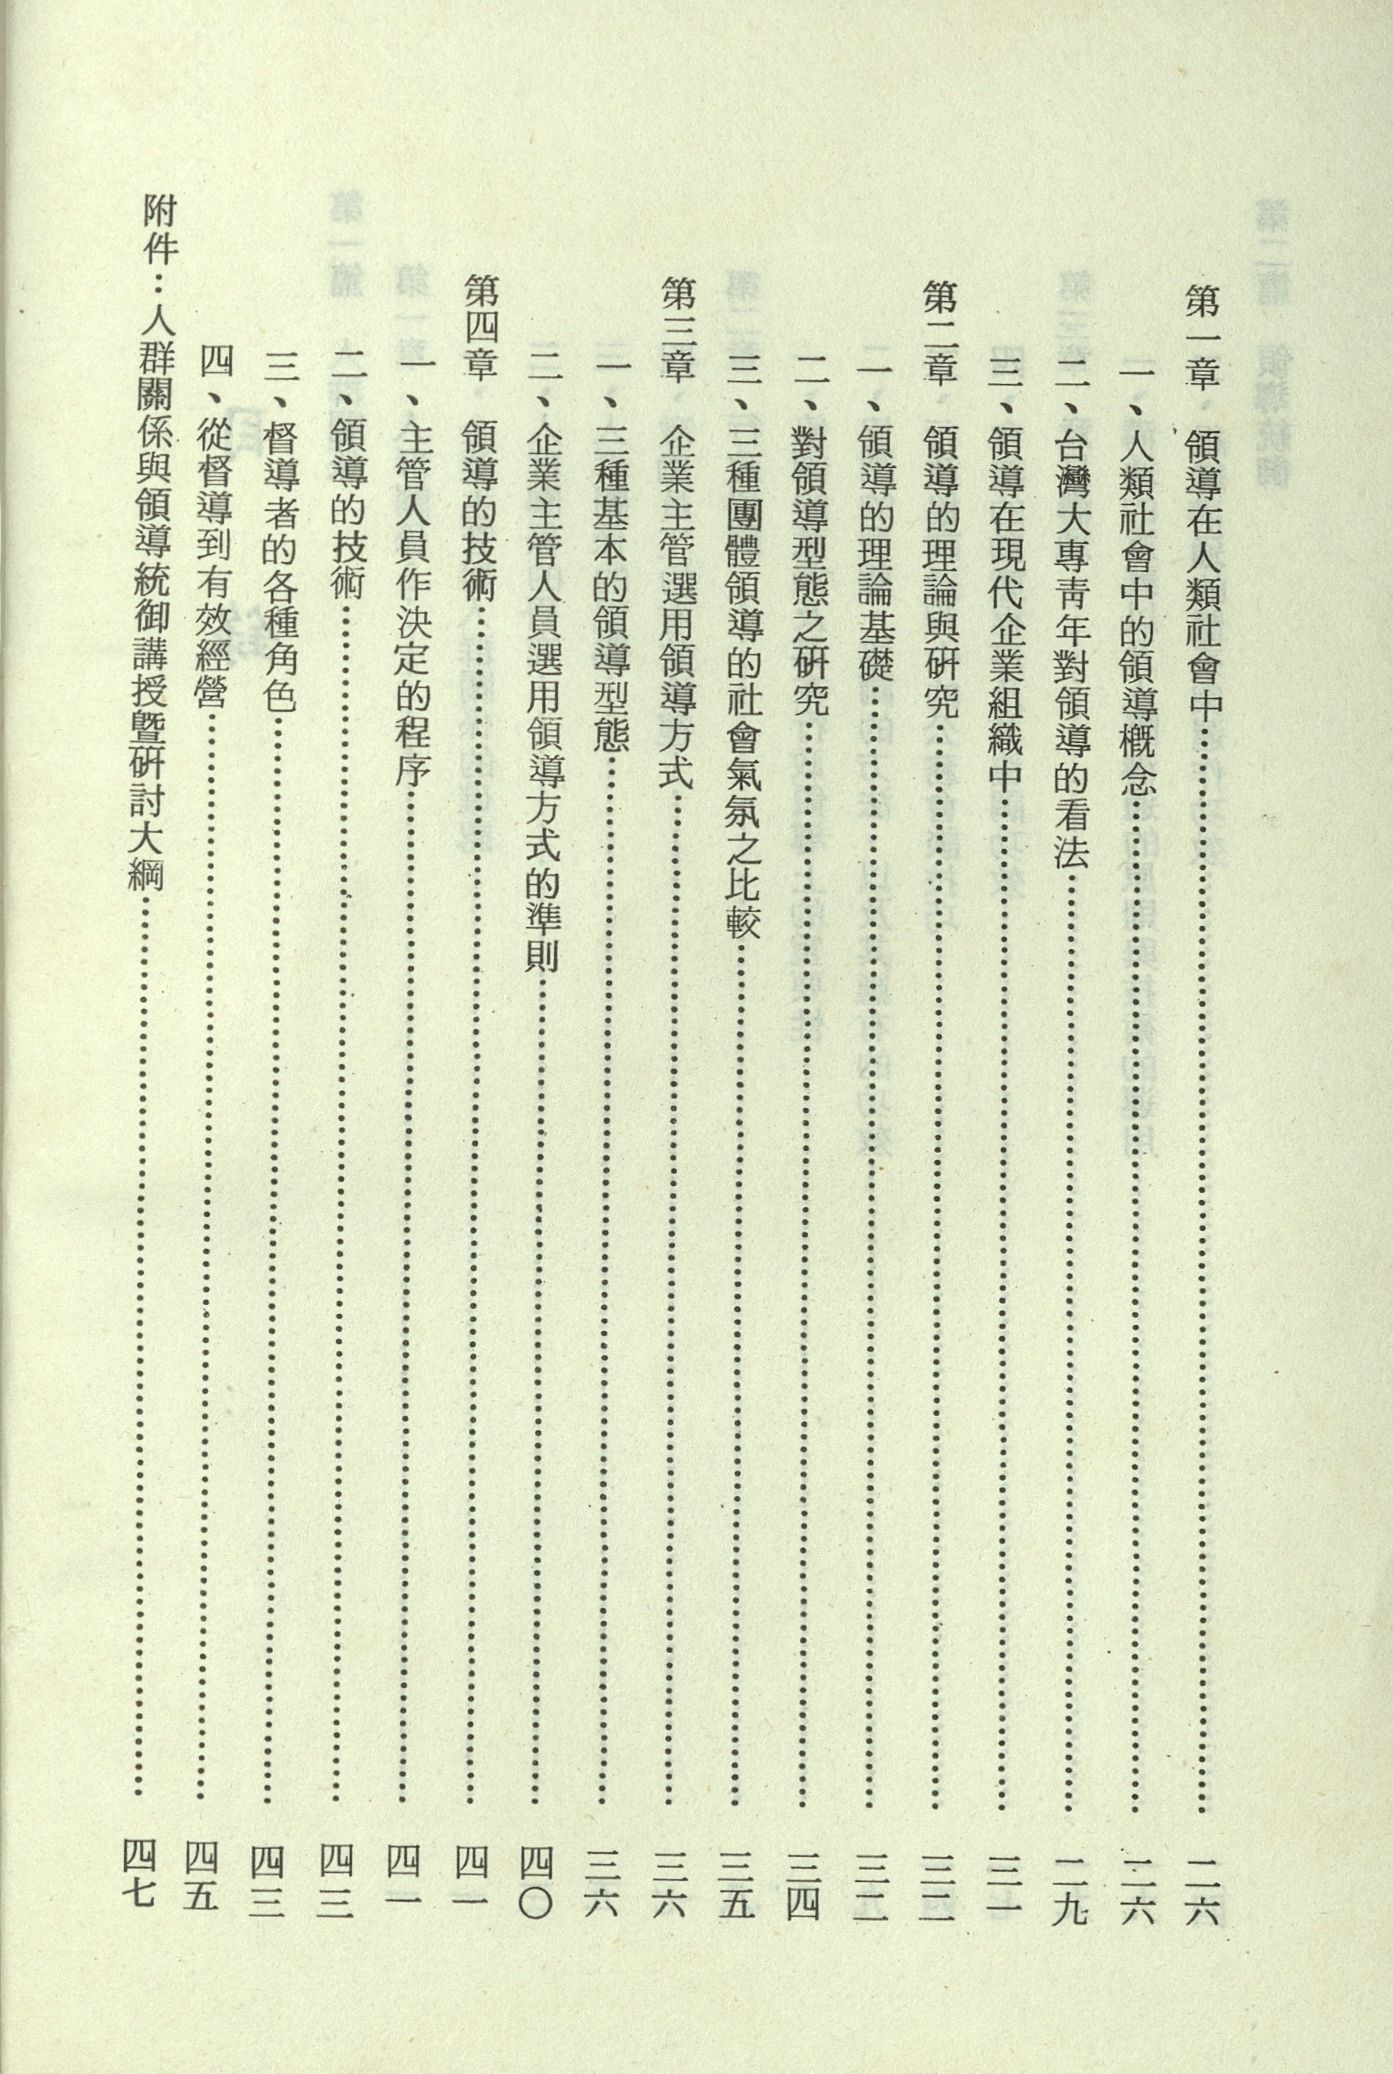 第一章　領導在人類社會中…………二六
一、人類社會中的領導概念…………二六
二、台灣大專青年對領導的看法…………二九
三、領導在現代企業組織中…………三一
第二章　領導的理論與研究…………三二
一、領導的理論基礎…………三二
二、對領導型態之研究…………三四
三、三種團體領導的社會氣氛之比較…………三五
第三章　企業主管選用領導方式…………三六
一、三種基本的領導型態…………三六
二、企業主管人員選用領導方式的準則…………四〇
第四章　領導的技術…………四一
一、主管人員作決定的程序…………四一
二、領導的技術…………四三
三、督導者的各種角色…………四三
四、從督導到有效經營…………四五
附件：人群關係與領導統御講授暨研討大綱…………四七